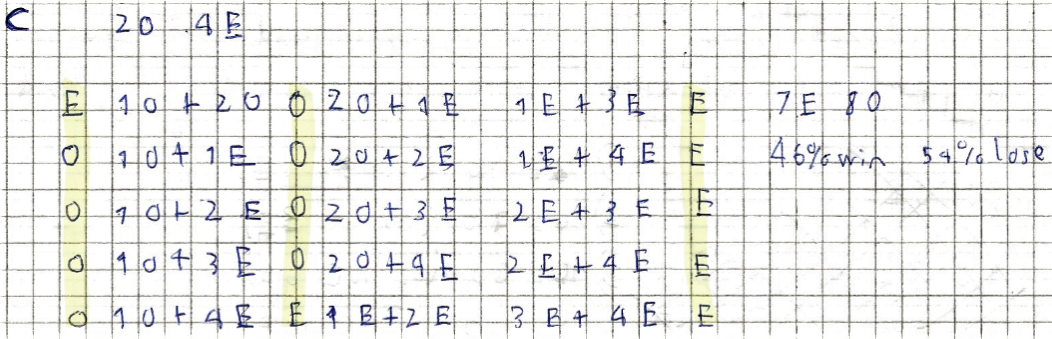 C 20 4E
E 10+20 O 20+1E 1E+3E E 7E 80
O 10+1E O 20+2E 1E+4E E 46% win 54% lose
O 10+2E O 20+3E 2E+3E E
O 10+3E O 20+4E 2E+4E E
O 10+4E E 1E+2E 3E+4E E